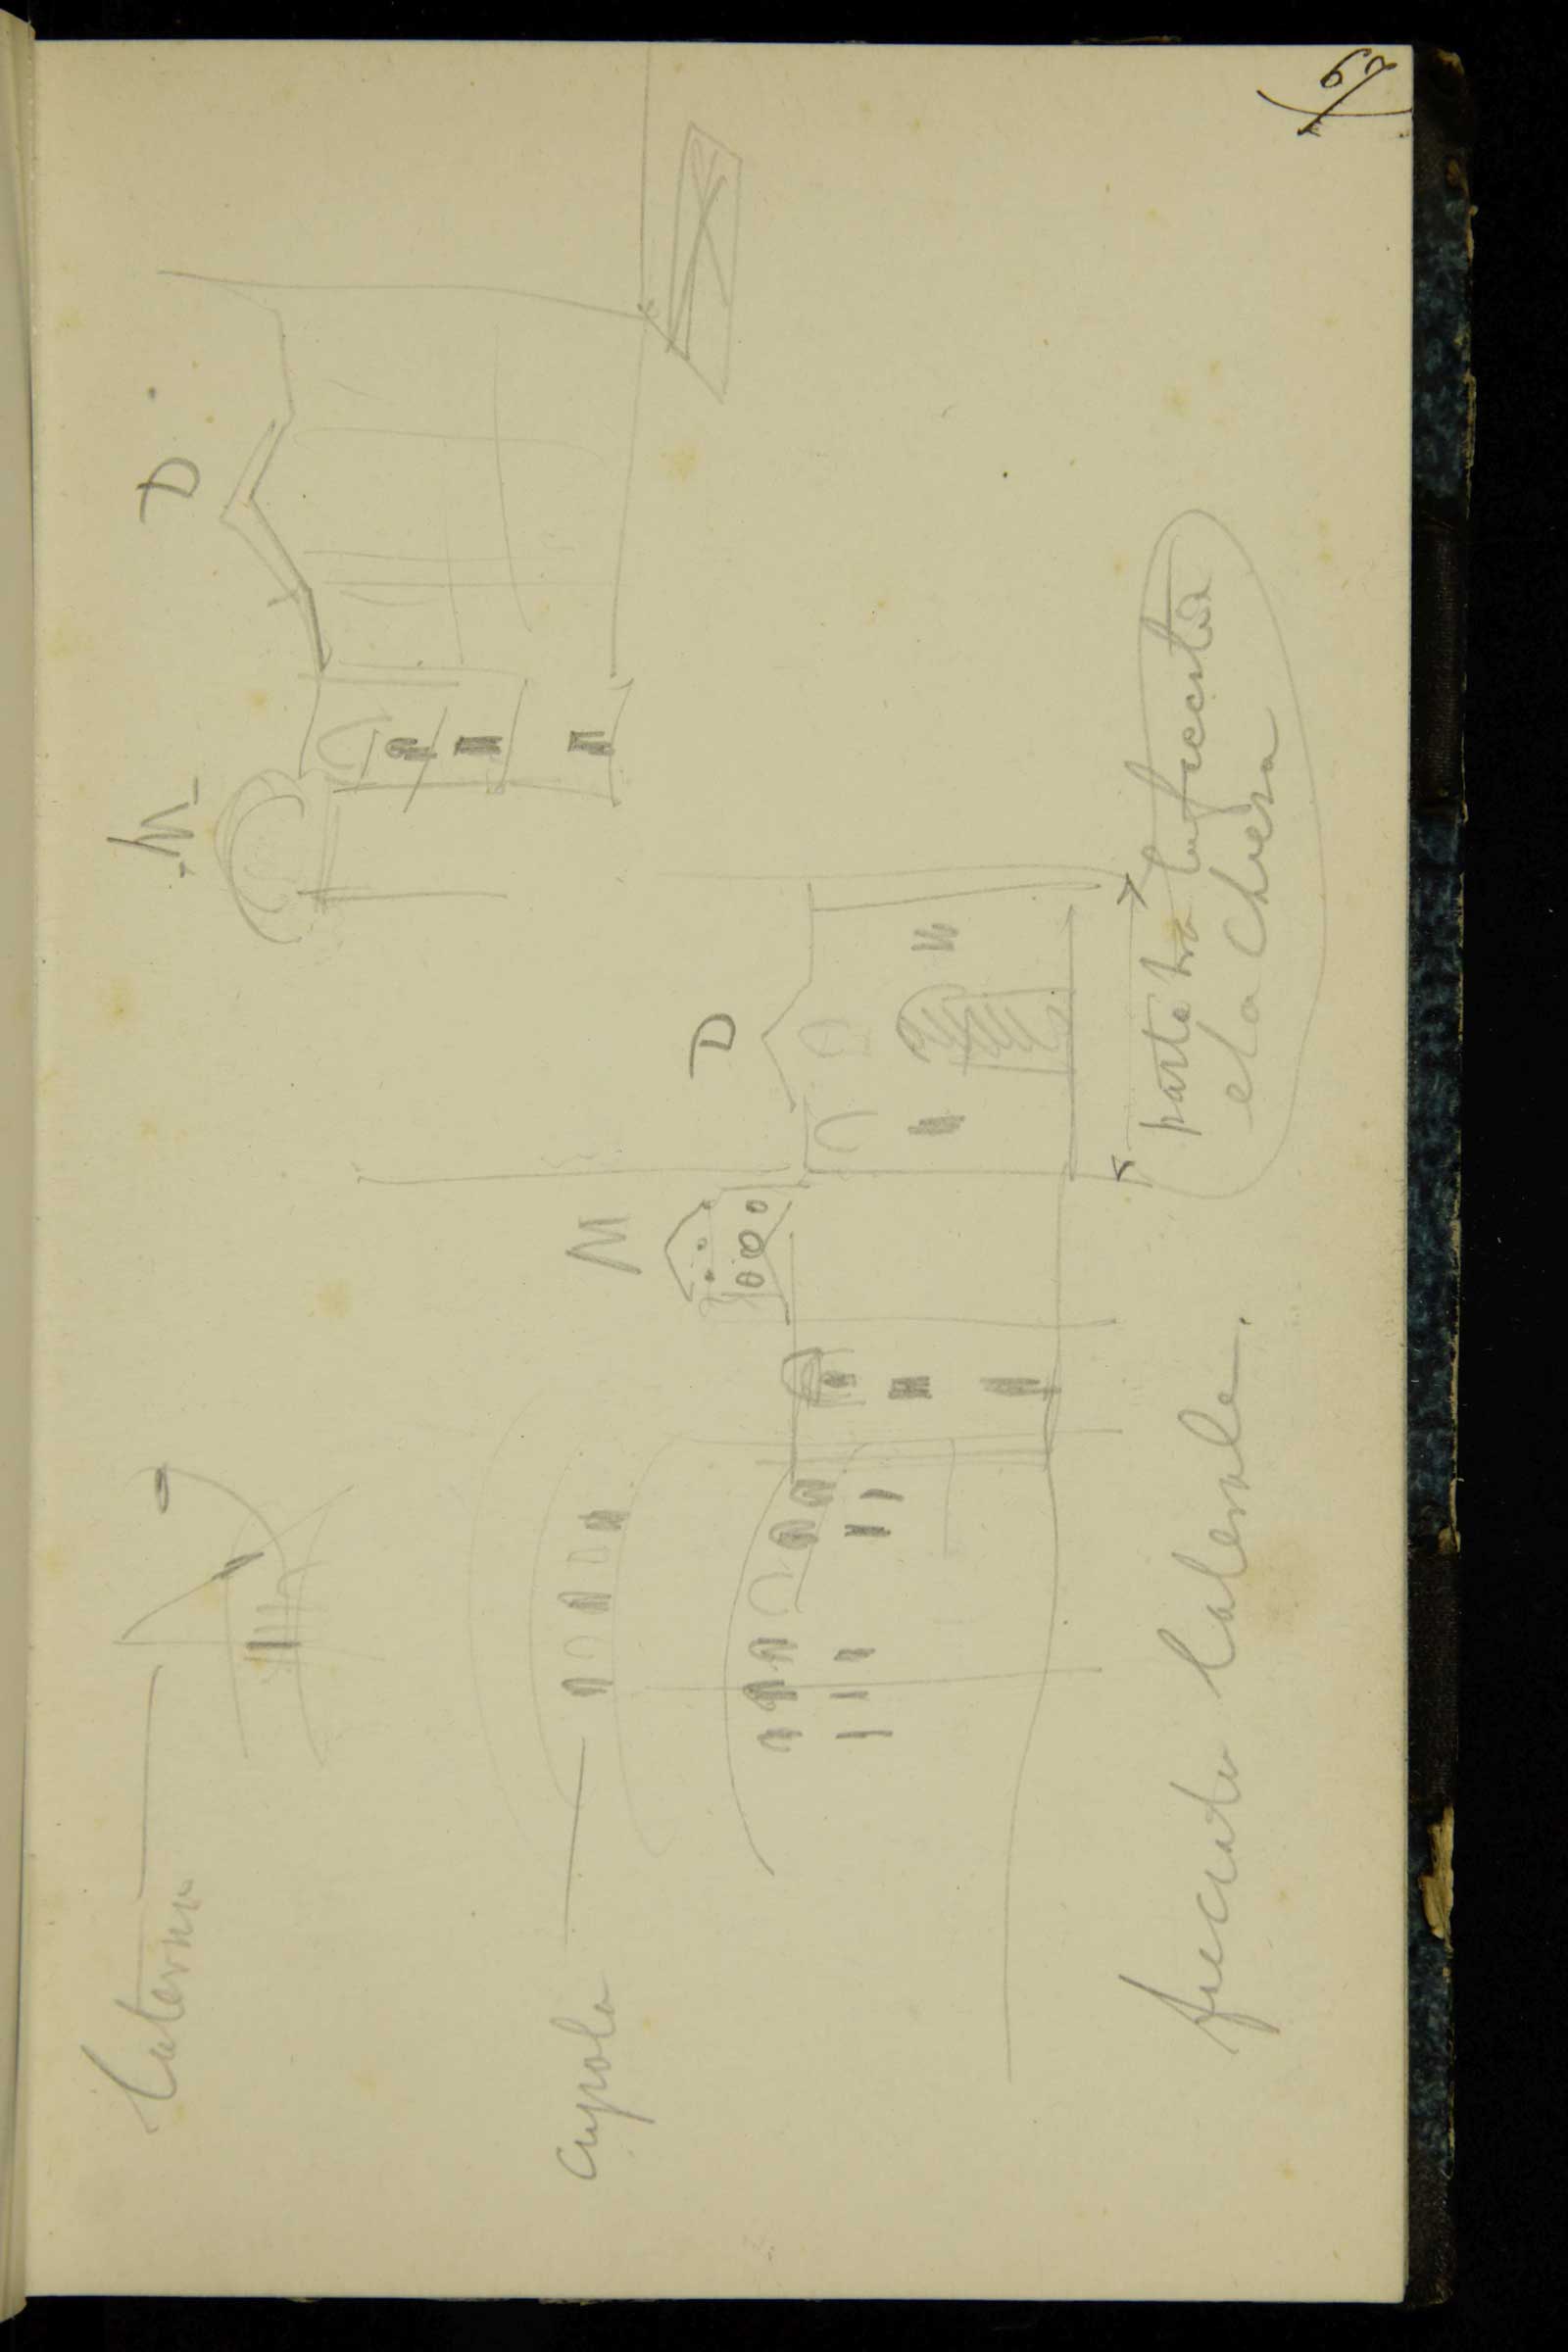 67
Laterna
D
M
cupola
M
D
parte tra la facciata
e la chiesa
facciata laterale.